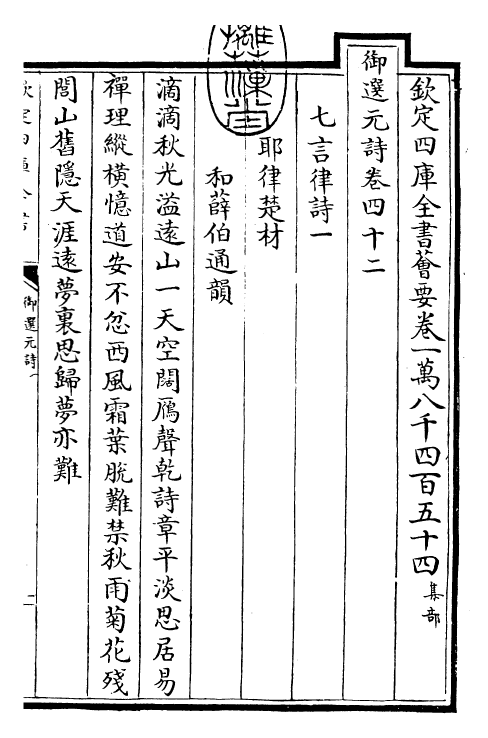 欽定四庫全書薈要卷一萬八千四百五十四集部
御選元詩卷四十二
七言律詩一
耶律楚材
和薛伯通韻
滴滴秋光溢遠山一天空闊鴈聲乾詩章平淡思居易
禪理縱橫憶道安不忿西風霜葉脫難禁秋雨菊花殘
閭山舊隱天涯遠夢裏思歸夢亦難
御選元詩